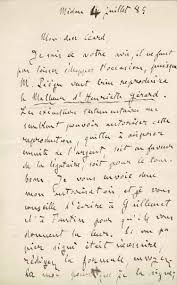 Médan 4 juillet 89
Mon cher Céard
Je suis de votre avis, il ne faut
pas laisser échapper l'occasion, puisque
M. veut bien reproduire
le Malheur d'Henriette Gérard.
Les exécuteurs testamentaires me
semblent pouvoir autoriser cette
reproduction, quitte à disposer
ensuite de l'argent, soit en faveur
de la légataire, soit pour le tom-
beau. Je vous envoie donc
mon autorisation et je vous
conseille d'écrire à Guillemet
et à pour qu'ils vous
donnent la leur. Si un pa-
pier signé était nécessaire,
rédigez la formule, envoyez-
la moi pour que je la signe,